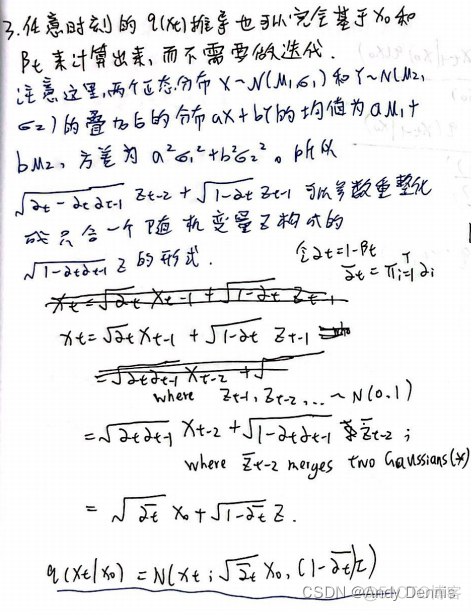 3. 任意时刻的 q(xt) 推导也可以完全基于 x₀ 和
βt 来计算出来, 而不需要做迭代.
注意这里, 两个正态分布 X~N(μ₁,σ₁) 和 Y~N(μ₂,
σ₂) 的叠加后的分布 aX+bY 的均值为 aμ₁+
bμ₂, 方差为 a²σ₁²+b²σ₂². 所以
√(αt-αtαt-1) Zt-2 + √(1-αt) Zt-1 可以参数重整化
成只含一个随机变量 Z 构成的
√(1-αtαt-1) Z 的形式.
令 αt=1-βt
ᾱt = Π_{i=1}^{T} αi
xt = √αt Xt-1 + √(1-αt) Zt-1
xt = √αt Xt-1 + √(1-αt) Zt-1
= √(αtαt-1) Xt-2 + √
where Zt-1, Zt-2, ... ~ N(0,1)
= √(αtαt-1) Xt-2 + √(1-αtαt-1) Z̄t-2 ;
where Z̄t-2 merges two Gaussians(*)
= √ᾱt X₀ + √(1-ᾱt) Z.
q(Xt|X₀) = N(Xt ; √ᾱt X₀, (1-ᾱt)I)
CSDN @Andy Dennis